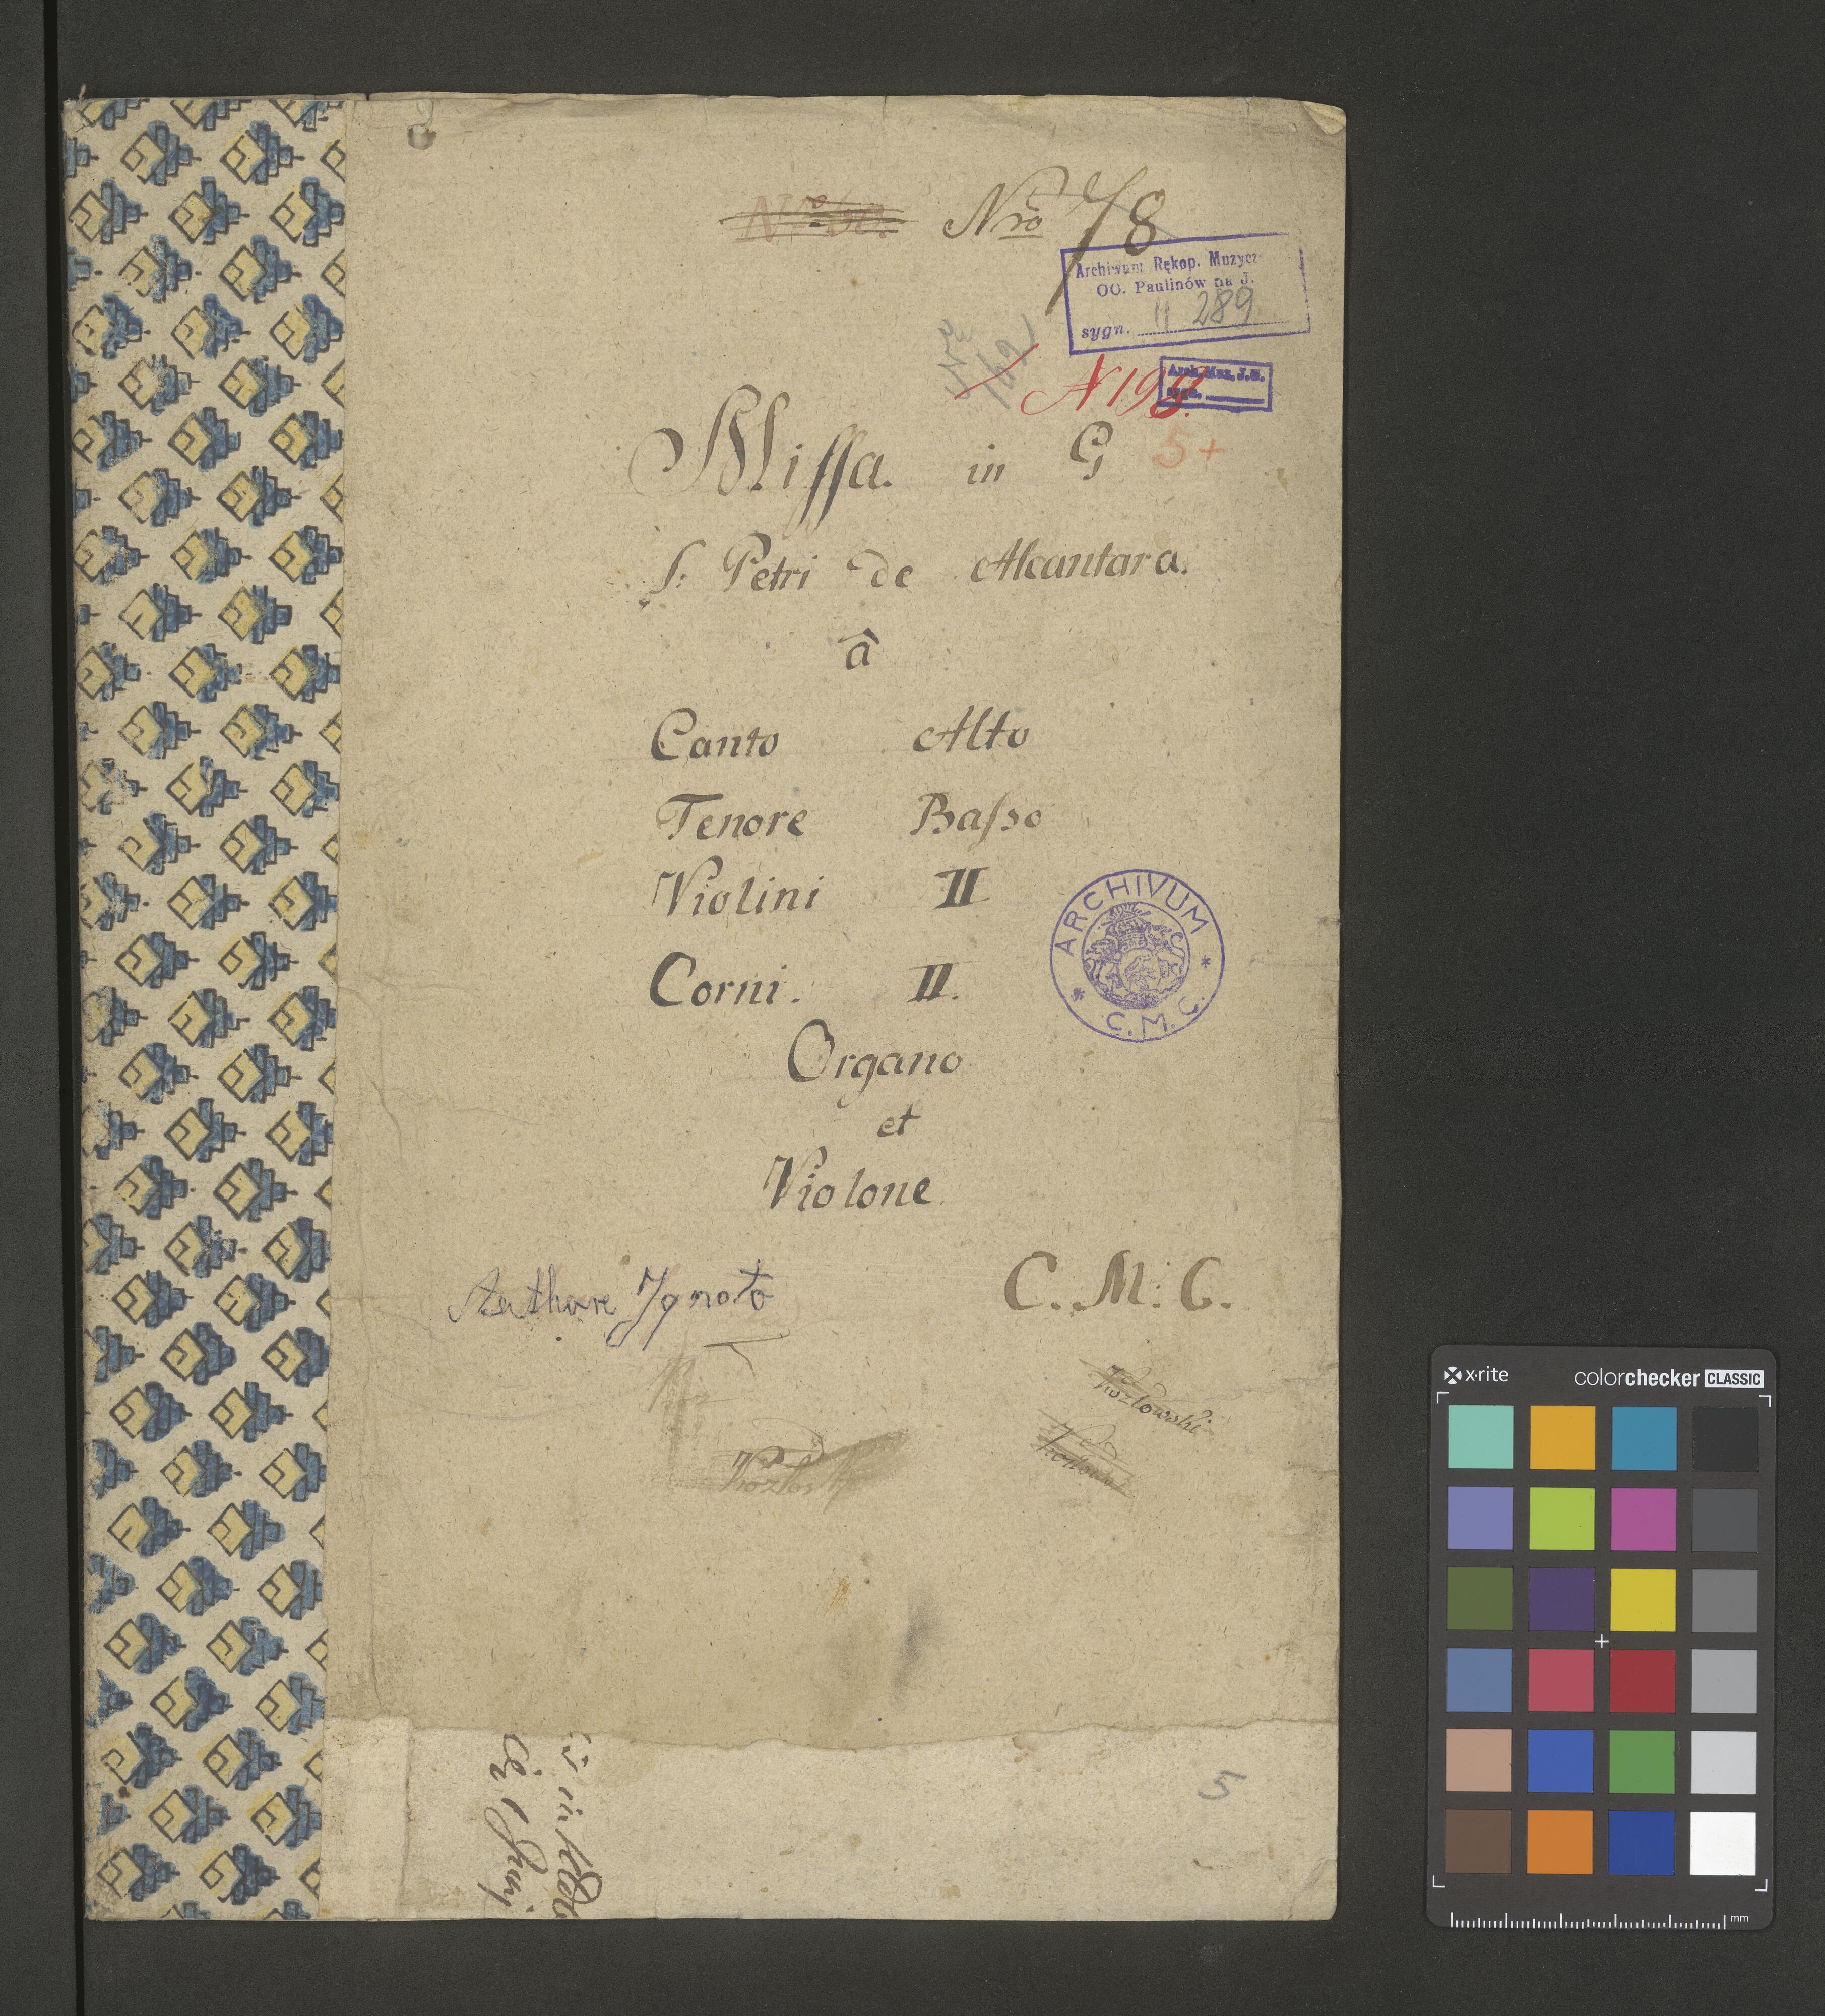 Nro 78
Archiwum Rękop. Muzycz.
OO. Paulinów na J.
sygn. II 289
N 198.
Arch. Muz. J.G.
sygn.
Missa. in G 5+
S: Petri de Alcantara.
â
Canto Alto
Tenore Basso
Violini II
Corni. II.
ARCHIVUM
* C.M.C. *
Organo
et
Violone.
Authore Ignoto
C. M. C.
Kozłowski
5
x·rite colorchecker CLASSIC
mm